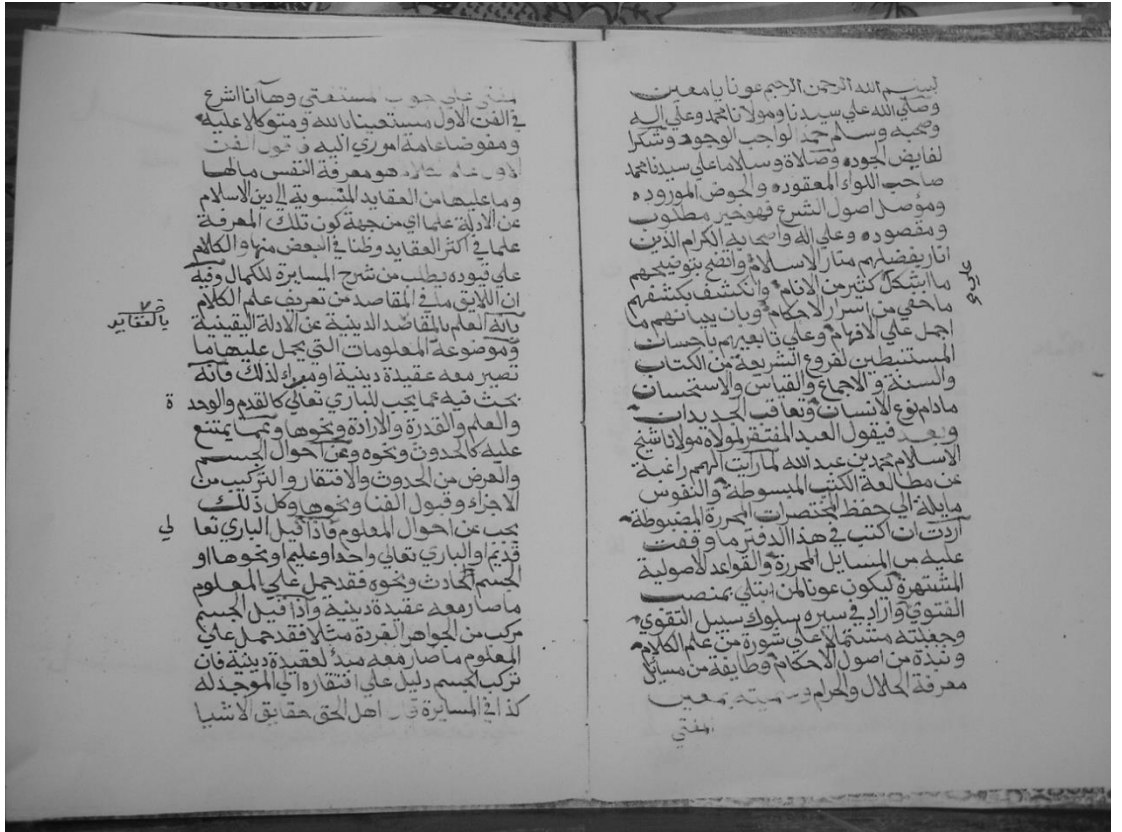 بسم الله الرحمن الرحيم عونا يا معين
وصلي الله علي سيدنا ومولانا محمد وعلي اله
وصحبه وسلم حمدا لواجب الوجود وشكرا
لفايض الجوده وصلاة وسلاما علي سيدنا محمد
صاحب اللواء المعقوده والحوض الموروده
وموصل اصول الشرع فهو خير مطلوب
ومقصوده وعلي اله واصحابه الكرام الذين
انار بفضلهم منار الاسلام واتضح بتوضيحهم
ما اشكل كثير من الانام وانكشف بكشفهم
علي
ما خفي من اسرار الاحكام وبان ببيانهم ما
اجمل علي الافهام وعلي تابعيهم باحسان
المستنبطين لفروع الشريعة من الكتاب
والسنة والاجماع والقياس والاستحسان
مادام نوع الانسان وتعاقب الجديدان
وبعد فيقول العبد المفتقر لمولاه مولانا شيخ
الاسلام محمد بن عبد الله لما رايت الهمم راغبة
عن مطالعة الكتب المبسوطة والنفوس
مايلة الي حفظ المختصرات المحررة المضبوطة
اردت ان اكتب في هذا الدفتر ما وقفت
عليه من المسايل المحررة والقواعد الاصولية
المشتهرة ليكون عونا لمن ابتلي بمنصب
الفتوي واراد في سيره سلوك سبيل التقوي
وجعلته مشتملا علي شورة من علم الكلام
ونبذة من اصول الاحكام وطايفة من مسايل
معرفة الحلال والحرام وسميته بمعين
المفتي
المفتي علي جواب المستفتي وها انا اشرع
في الفن الاول مستعينا بالله ومتوكلا عليه
ومفوضا عامة اموري اليه فاقول الفن
الاول علم الكلام هو معرفة النفس مالها
وما عليها من العقايد المنسوبة الي دين الاسلام
عن الادلة علما اي من جهة كون تلك المعرفة
علما في اكثر العقايد وظنا في البعض منها والكلام
علي قيوده يطلب من شرح المسايرة للكمال وفيه
ان اللايق ما في المقاصد من تعريف علم الكلام
بانه العلم بالمقاصد الدينية عن الادلة اليقينية
بالعقايد
وموضوعه المعلومات التي يحمل عليها ما
تصير معه عقيدة دينية او مبدا لذلك فانه
بحث فيه عما يجب للباري تعالي كالقدم والوحدة
والعلم والقدرة والارادة ونحوها وعما يمتنع
عليه كالحدوث ونحوه وعن احوال الجسم
والعرض من الحدوث والافتقار والتركيب من
الاجزاء وقبول الفنا ونحوها وكل ذلك
بحث عن احوال المعلوم فاذا قيل الباري تعالي
قديم او الباري تعالي واحد او عليم او نحوها او
الجسم الحادث ونحوه فقد حمل علي المعلوم
ما صار معه عقيدة دينية واذا قيل الجسم
مركب من الجواهر الفردة مثلا فقد حمل علي
المعلوم ما صار معه مبدا لعقيدة دينية فان
تركب الجسم دليل علي افتقاره الي الموجد له
كذا في المسايرة قال اهل الحق حقايق الاشيا